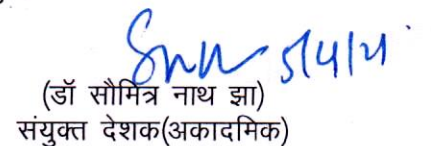 5/4/21
(डॉ सौमित्र नाथ झा)
संयुक्त देशक(अकादमिक)